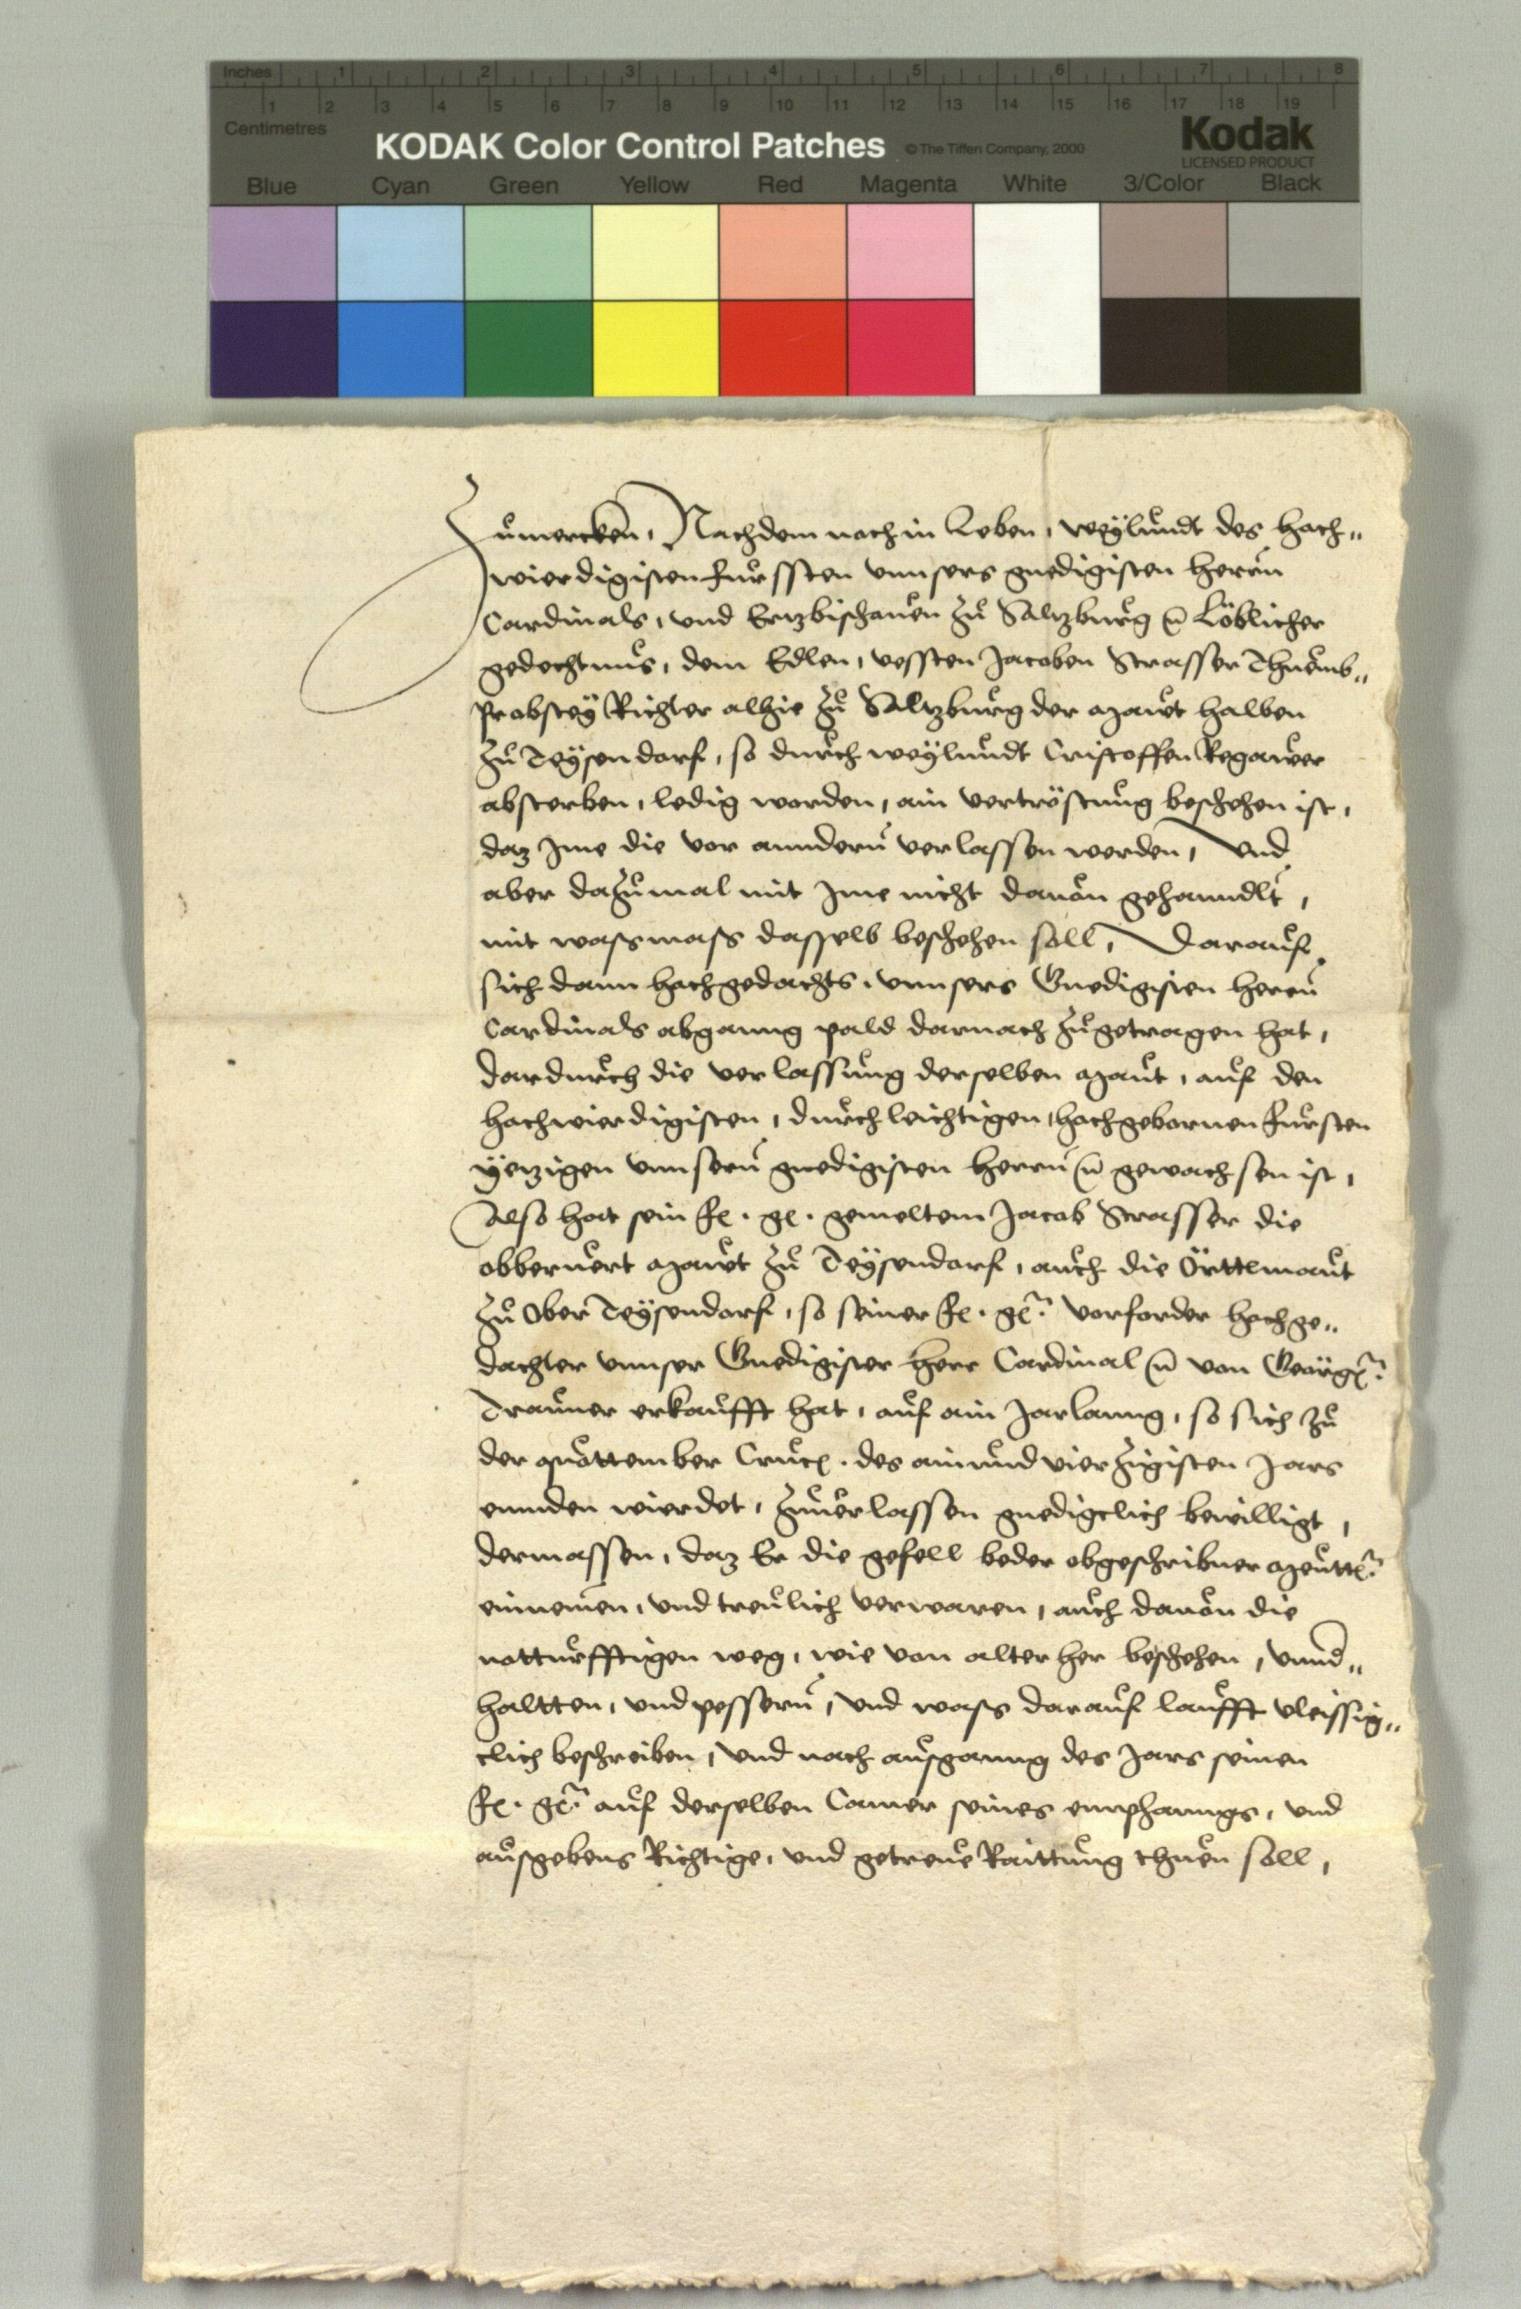 Inches 1 2 3 4 5 6 7 8
1 2 3 4 5 6 7 8 9 10 11 12 13 14 15 16 17 18 19
Centimetres
KODAK Color Control Patches © The Tiffen Company, 2000 Kodak
LICENSED PRODUCT
Blue Cyan Green Yellow Red Magenta White 3/Color Black
Zůmercken, Nachdem noch in Leben, weÿlundt des hach„
wierdigisten Fürssten vnnsers gnedigisten herrn
Cardinals, vnd Ertzbischouen zů Saltzburg Löblicher
gedechtnus, dem Edlen, vessten Jacoben Strasser Thuemb„
Probsteÿ Richter alhie zů Saltzburg der Maut halben
zů Teÿsendorf, so durch weÿlundt Cristoffen Regauer
absterben, ledig worden, ain vertröstung beschehen ist,
daz Ime die vor anndern verlassen werden, Vnd
aber dazumal mit Ime nicht dauon gehanndlt,
mit wasmass dasselb beschehen soll, Darauf
sich dann hachgedachts, vnnsers Gnedigisten herrn
Cardinals abganng pald darnach zůgetragen hat,
dardurch die verlassung derselben Maut, auf den
hachwierdigisten, durchleichtigen, hachgebornen Fürsten
ÿetzigen vnnsern gnedigisten herrn gewachsen ist,
Also hat sein Fr. gn. gemeltem Jacob Strasser die
obberuert Maut zů Teÿsendorf, auch die Örttlmaut
zů Ober Teÿsendorf, so seiner Fr. gn. Vorforder hachge„
dachter vnnser Gnedigister herr Cardinal von Georgen
Trauner erkaufft hat, auf ain Jarlanng, so sich zů
der quottember Crucis. des ainundvierzigisten Jars
ennden wierdet, zuuerlassen gnedigclich bewilligt,
dermassen, daz Er die gefell beder obgeschribner Meutten
einnemen, vnd treulich verwaren, auch dauon die
notturfftigen weg, wie von alter her beschehen, vnnd„
haltten, vnd pessern, vnd was darauf laufft vleissig„
clich beschreiben, vnd nach ausganng des Jars seinen
Fr. gn. auf derselben Camer seines emphanngs, vnd
ausgebens Richtige, vnd getreue Raittung thuen soll,